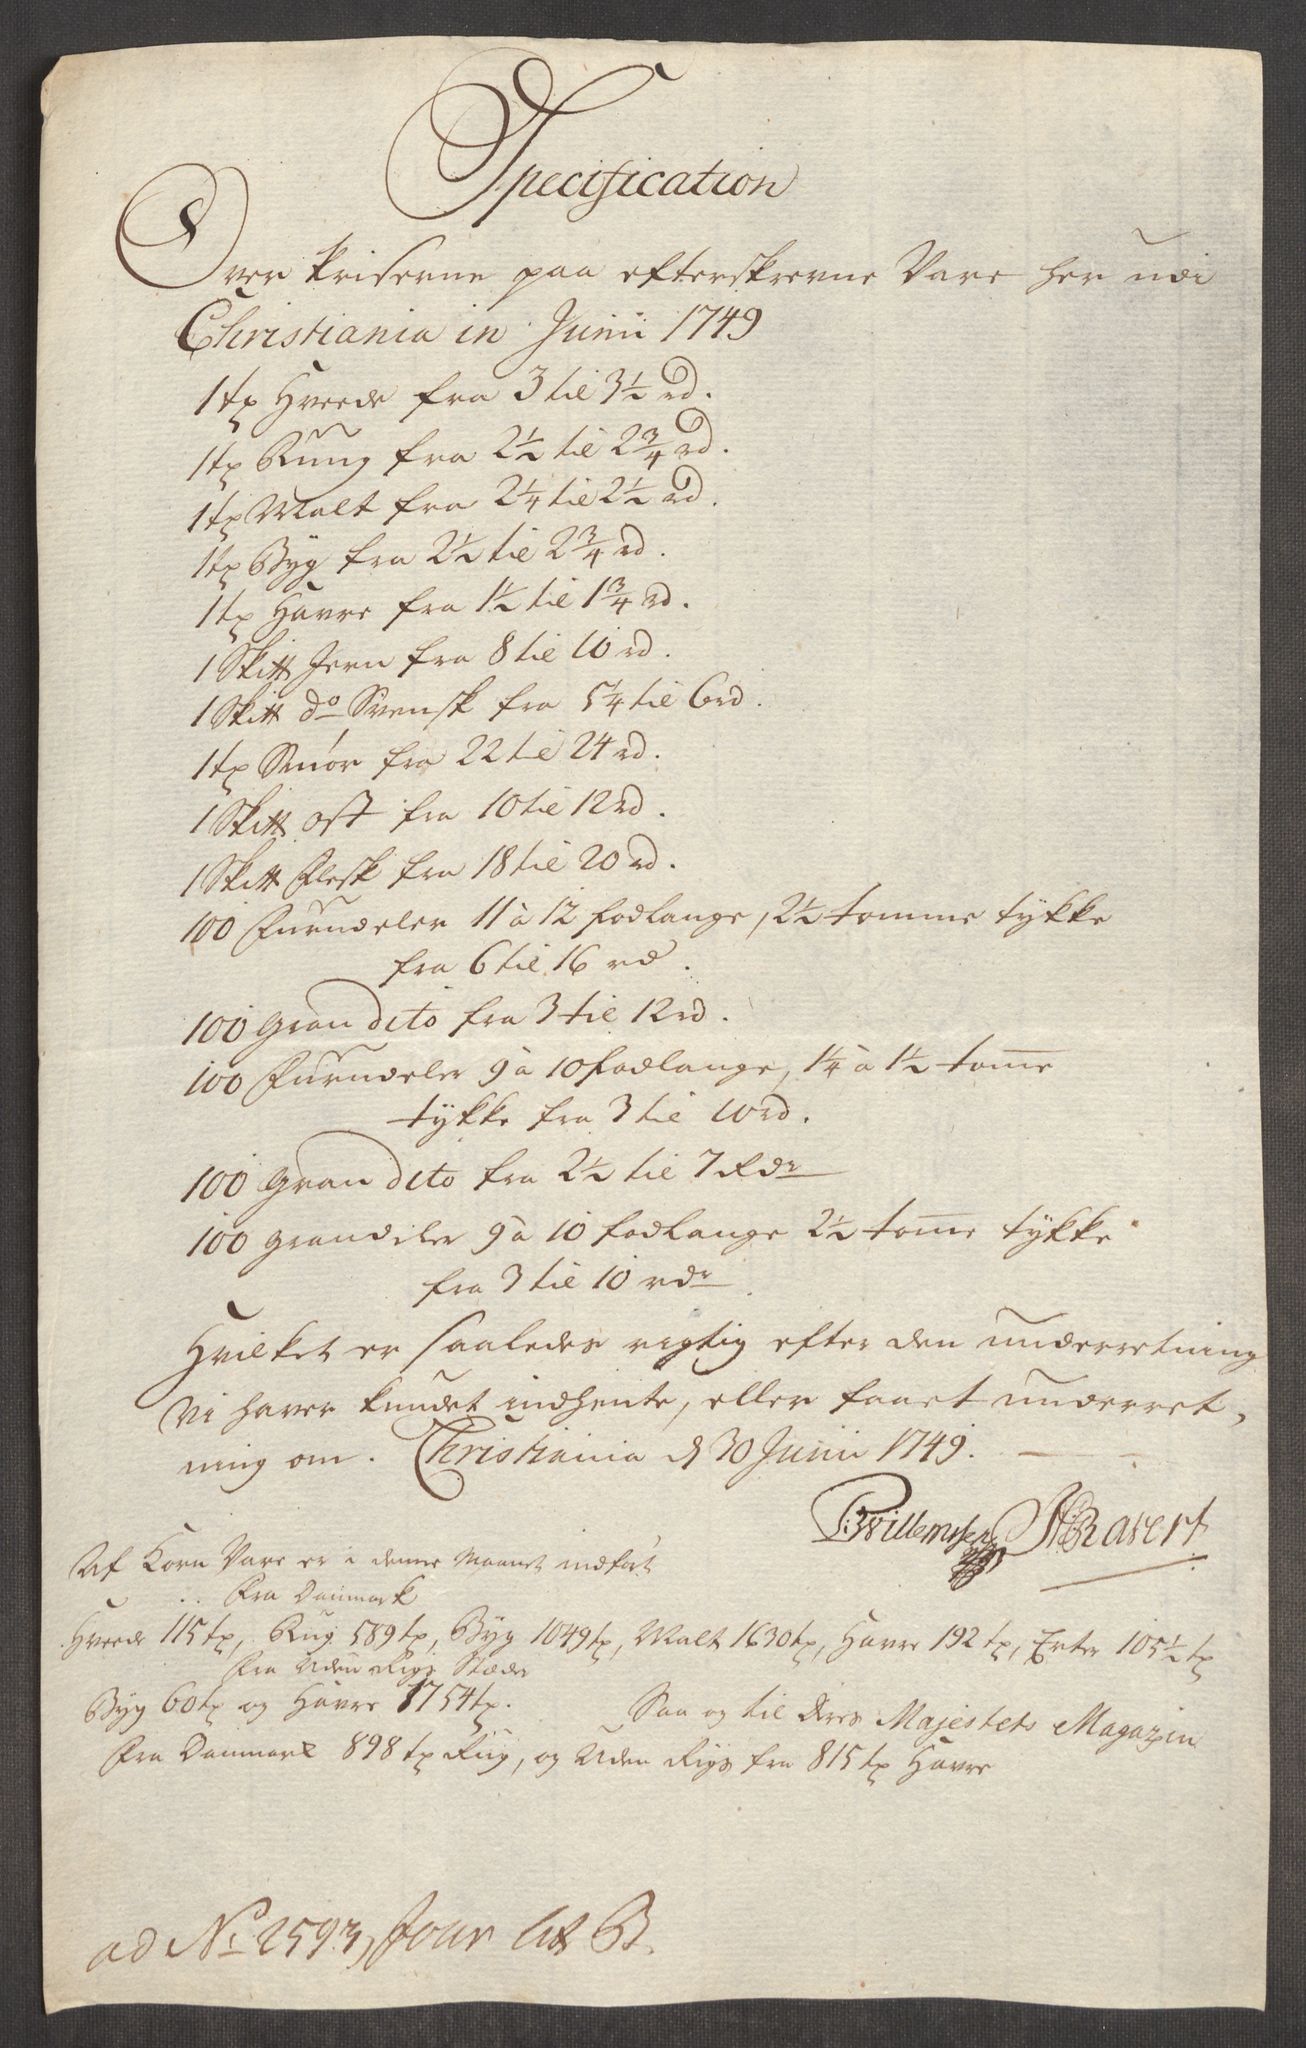 Specification
Over Priserne paa efterskrevne Vare her udi
Christiania in Junii 1749
1 tø Hvede fra 3 til 3½ rd.
1 tø Rug fra 2½ til 2¾ rd.
1 tø Malt fra 2¼ til 2½ rd.
1 tø Byg fra 2½ til 2¾ rd.
1 tø Havre fra 1½ til 1¾ rd.
1 Skltt Jern fra 8 til 10 rd.
1 Skltt do Svensk fra 5¼ til 6 rd.
1 tø Smør fra 22 til 24 rd.
1 Skltt ost fra 10 til 12 rd.
1 Skltt Flesk fra 18 til 20 rd.
100 Furudeler 11 à 12 fodlange, 2½ tomme tykke
fra 6 til 16 rd.
100 Gran dito fra 3 til 12 rd.
100 Furudeler 9 à 10 fodlange, 1¼ à 1½ tome
tykke fra 3 til 10 rd.
100 Gran dito fra 2½ til 7 Rdr
100 grandeler 9 à 10 fodlange 2½ tome tykke
fra 3 til 10 rdr.
Hvilket er saaledes rigtig efter den underretning
vi haver kundet indhente, eller faaet underret,
ning om. Christiania d 30 Junii 1749.
Willemsen Ravert
Af Korn Vare er i denne Maanet indført
Fra Danmark
Hvede 115 tø, Rug 589 tø, Byg 1049 tø, Malt 1630 tø, Havre 192 tø, Erter 105½ tø
Fra Uden Rigs Stæder
Byg 60 tø og Havre 1754 tø. Saa og til Deres Majestets Magazin
Fra Danmark 898 tø Rug, og Uden Rigs fra 815 tø Havre
ad No 2593, Jour Lit B.